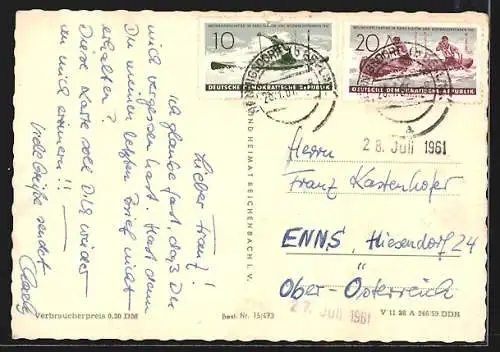 Lieber Franz!
Ich glaube fast, daß Du
mich vergessen hast. Hast denn
Du meinen letzten Brief nicht
erhalten?
Diese Karte soll Dich wieder
an mich erinnern!!
Viele Grüße sendet
WELTMEISTERSCHAFTEN IM KANU-SLALOM UND WILDWASSERRENNEN 1961
10
DEUTSCHE DEMOKRATISCHE REPUBLIK
WELTMEISTERSCHAFTEN IM KANU-SLALOM UND WILDWASSERRENNEN 1961
20
DEUTSCHE DEMOKRATISCHE REPUBLIK
28. Juli 1961
UND HEIMAT REICHENBACH I. V.
Herrn
Franz Kastenhofer
ENNS, Hiesendorf 24
Ober-Österreich
27. Juli 1961
Verbraucherpreis 0,20 DM
Best. Nr. 15/473
V 11 28 A 246/59 DDR